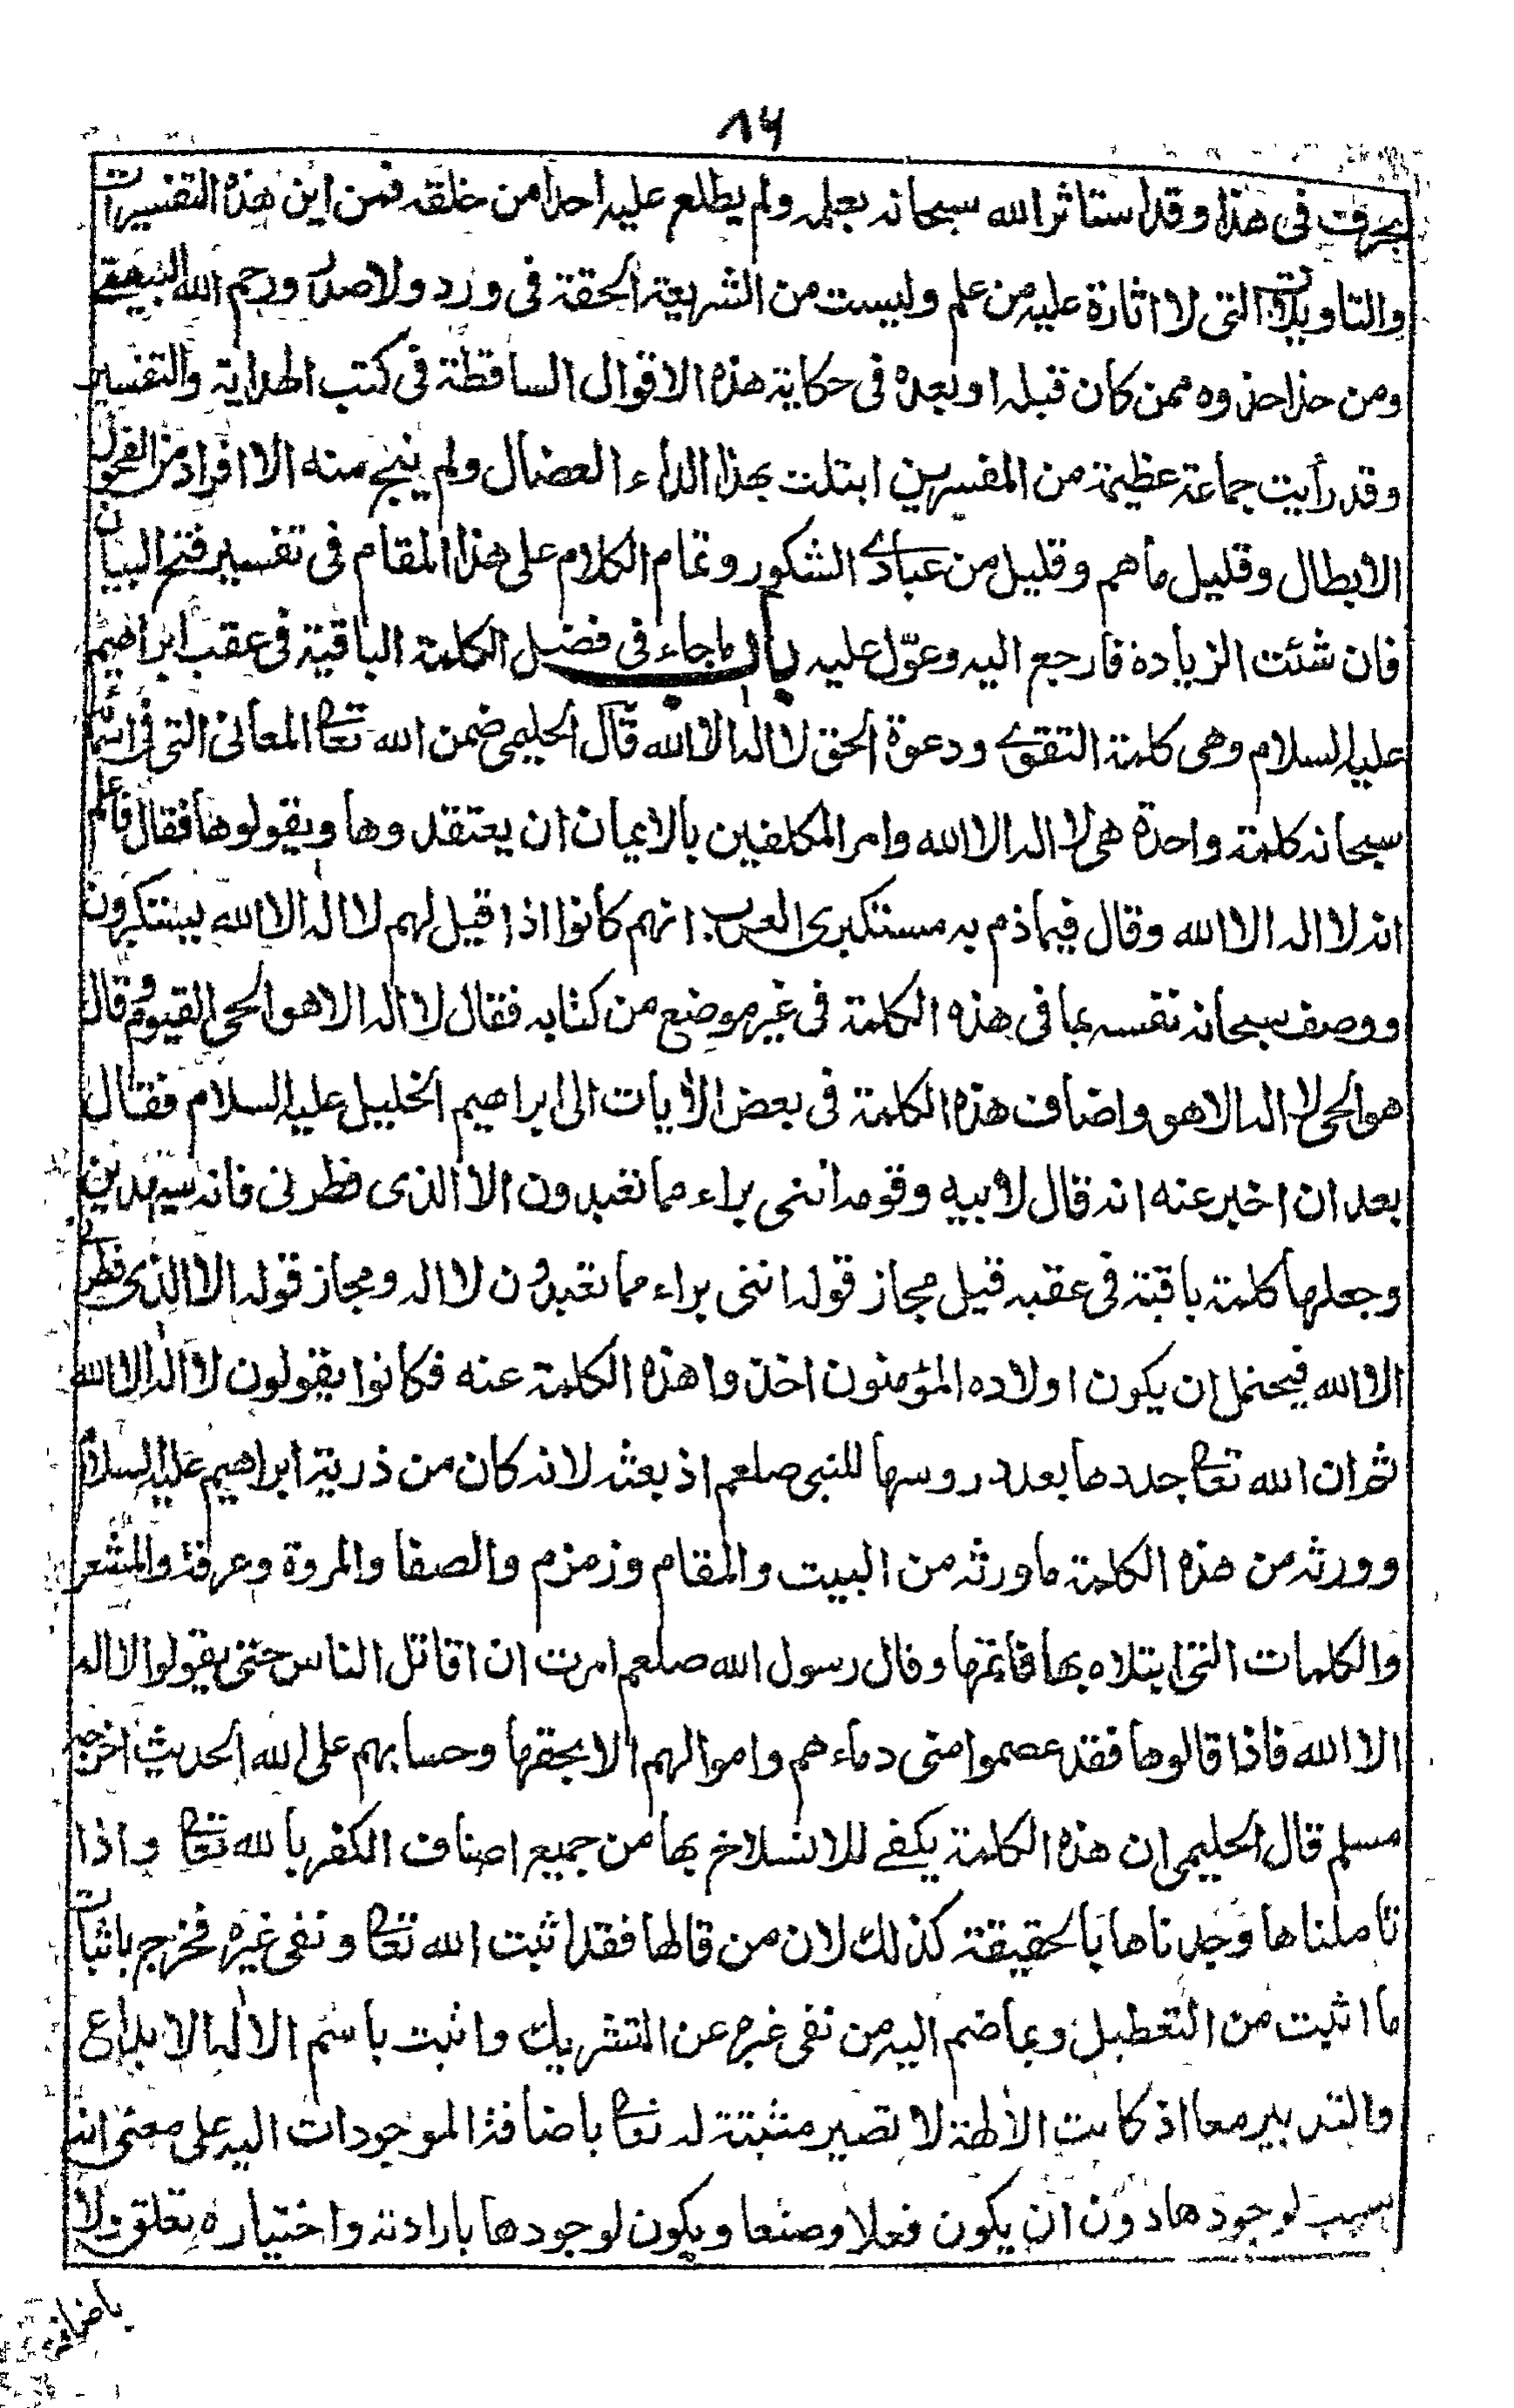 ١٤
بحرف فى هذا وقد استاثر الله سبحانه بعلمه ولم يطلع عليه احدا من خلقه فمن اين هذه التفسيرات
والتاويلات التى لا اثارة عليه من علم وليست من الشريعة الحقة فى ورد ولا صدر ورحم الله البيهقى
ومن حذا حذوه ممن كان قبله او بعده فى حكاية هذه الاقوال الساقطة فى كتب الهداية والتفسير
وقد رأيت جماعة عظيمة من المفسرين ابتلت بهذا الداء العضال ولم ينج منه الا افراد من الفحول
الابطال وقليل ما هم وقليل من عبادى الشكور وتمام الكلام على هذا المقام فى تفسير فتح البيان
فان شئت الزيادة فارجع اليه وعوّل عليه باب ما جاء فى فضل الكلمة الباقية فى عقب ابراهيم
عليه السلام وهى كلمة التقوى ودعوة الحق لا اله الا الله قال الحليمى ضمن الله تعالى المعانى التى فى اسمائه
سبحانه كلمة واحدة هى لا اله الا الله وامر المكلفين بالايمان ان يعتقدوها ويقولوها فقال فاعلم
انه لا اله الا الله وقال فيما ذم به مستكبرى العرب انهم كانوا اذا قيل لهم لا اله الا الله يستكبرون
ووصف سبحانه نفسه بما فى هذه الكلمة فى غير موضع من كتابه فقال لا اله الا هو الحى القيوم وقال
هو الحى لا اله الا هو واضاف هذه الكلمة فى بعض الأيات الى ابراهيم الخليل عليه السلام فقال
بعد ان اخبر عنه انه قال لابيه وقومه اننى براء مما تعبدون الا الذى فطرنى فانه سيهدين
وجعلها كلمة باقية فى عقبه قيل مجاز قوله اننى براء مما تعبدون لا اله ومجاز قوله الا الذى فطرنى
الا الله فيحتمل ان يكون اولاده المؤمنون اخذوا هذه الكلمة عنه فكانوا يقولون لا اله الا الله
ثم ان الله تعالى جددها بعد دروسها للنبى صلعم اذ بعثه لانه كان من ذرية ابراهيم عليه السلام
وورثه من هذه الكلمة ما ورثه من البيت والمقام وزمزم والصفا والمروة وعرفة والمشعر
والكلمات التى ابتلاه بها فاتمها وقال رسول الله صلعم امرت ان اقاتل الناس حتى يقولوا لا اله
الا الله فاذا قالوها فقد عصموا منى دماءهم واموالهم الا بحقها وحسابهم على الله الحديث اخرجه
مسلم قال الحليمى ان هذه الكلمة يكفى للانسلاخ بها من جميع اصناف الكفر بالله تعالى واذا
تاملناها وجدناها بالحقيقة كذلك لان من قالها فقد اثبت الله تعالى ونفى غيره فخرج باثبات
ما اثبت من التعطيل وبما ضم اليه من نفى غيره عن التشريك واثبت باسم الاله الابداع
والتدبير معا اذ كانت الألهة لا تصير مثبتة له تعالى باضافة الموجودات اليه على معنى انه
سبب لوجودها دون ان يكون فعلا وصنعا ويكون لوجودها بارادته واختياره تعلق ولا
باضافة